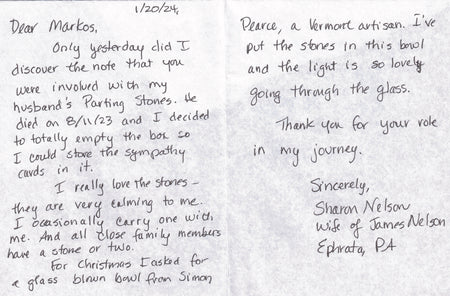 1/20/24,
Dear Markos,
Only yesterday did I
discover the note that you
were involved with my
husband's Parting Stones. He
died on 8/11/23 and I decided
to totally empty the box so
I could store the sympathy
cards in it.
I really love the stones –
they are very calming to me.
I ocasionally carry one with
me. And all close family members
have a stone or two.
For Christmas I asked for
a glass blown bowl from Simon
Pearce, a Vermont artisan. I've
put the stones in this bowl
and the light is so lovely
going through the glass.
Thank you for your role
in my journey.
Sincerely,
Sharon Nelson
Wife of James Nelson
Ephrata, PA